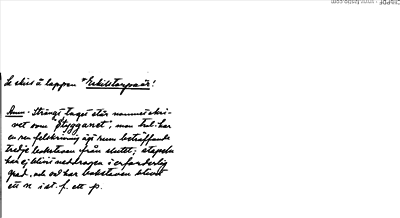 Se skiss å lappen "Eskilstorpaås"!
Anm. Strängt taget står namnet skri-
vet som "Stygganet", men tal. har
en ren felskrivning ägt rum beträffande
tredje bokstaven från slutet; stapeln
har ej blivit neddragen i erforderlig
grad, och då har bokstaven blivit
ett n i st. f. ett p.